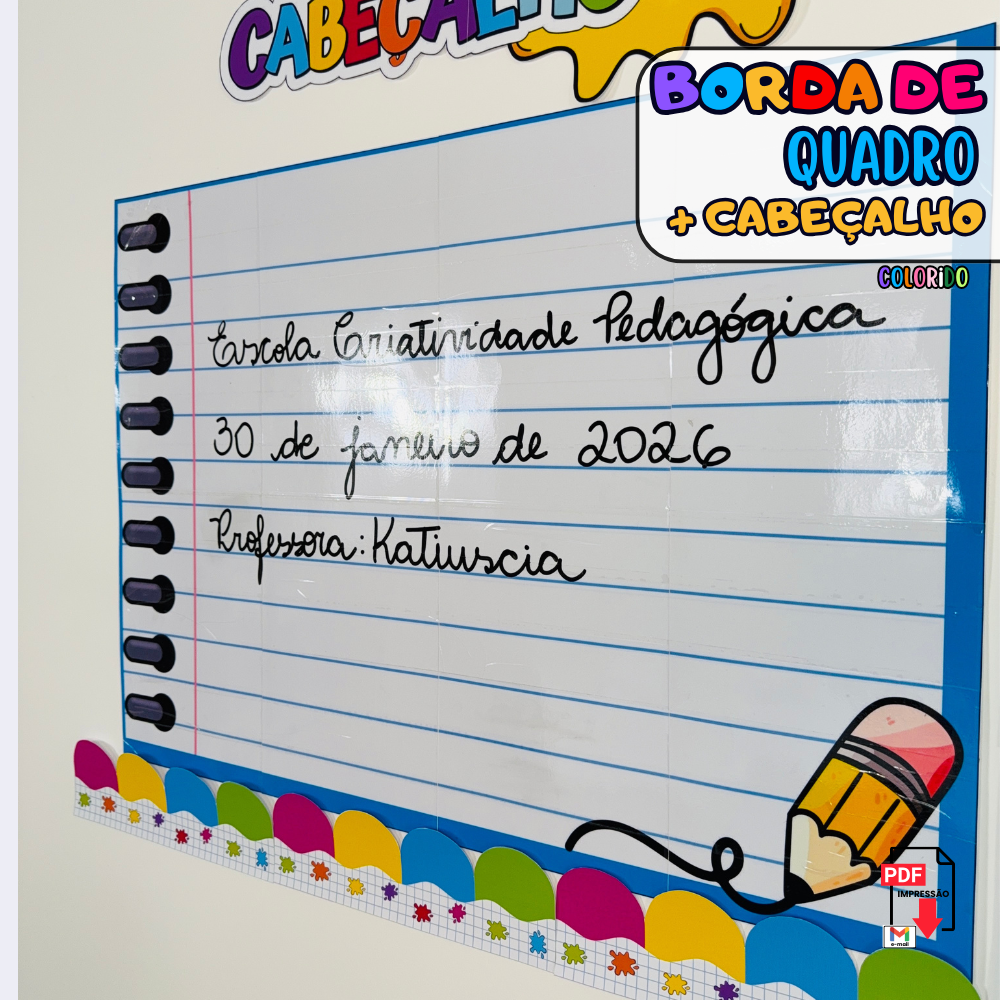 CABEÇALHO
BORDA DE
QUADRO
+ CABEÇALHO
COLORIDO
Escola Criatividade Pedagógica
30 de janeiro de 2026
Professora: Katiuscia
PDF
IMPRESSÃO
e-mail